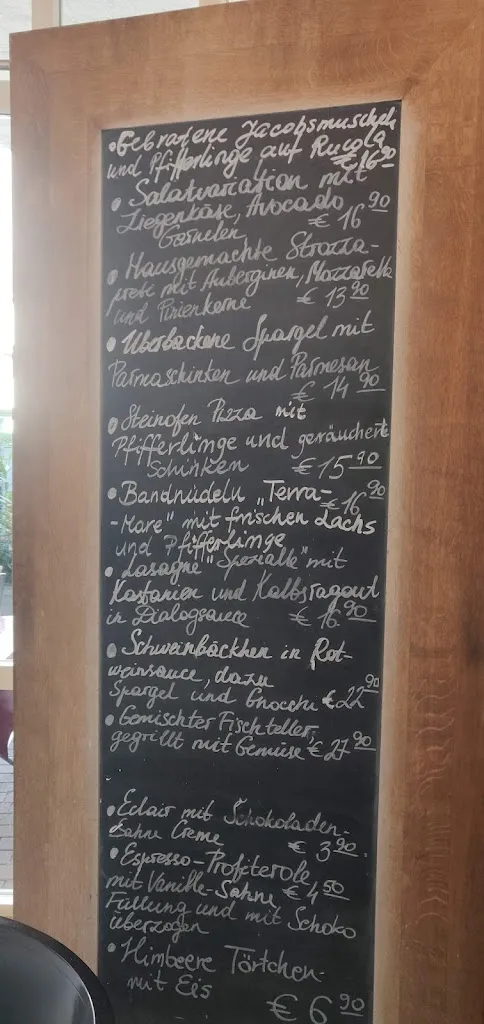 • Gebratene Jacobsmuscheln
und Pfifferlinge auf Rucola
€ 16 90
• Salatvariation mit
Ziegenkäse, Avocado
Garnelen € 16 90
• Hausgemachte Strozza-
prete mit Auberginen, Mozzarella
und Pinienkerne € 13 90
• Überbackene Spargel mit
Parmaschinken und Parmesan
€ 14 90
• Steinofen Pizza mit
Pfifferlinge und geräucherte
Schinken € 15 90
• Bandnudeln „Terra- € 16 90
-Mare" mit frischen Lachs
und Pfifferlinge
• Lasagne "Spezialle" mit
Kastanien und Kalbsragout
in Dialogsauce € 16 90
• Schweinbäckhen in Rot-
weinsauce, dazu
Spargel und Gnocchi € 22 90
• Gemischter Fischteller,
gegrillt mit Gemüse € 27 90
• Eclair mit Schokoladen-
Sahne Creme € 3 90.
• Espresso-Profiterole
mit Vanille-Sahne € 4 50
Füllung und mit Schoko
überzogen
• Himbeere Törtchen
mit Eis
€ 6 90